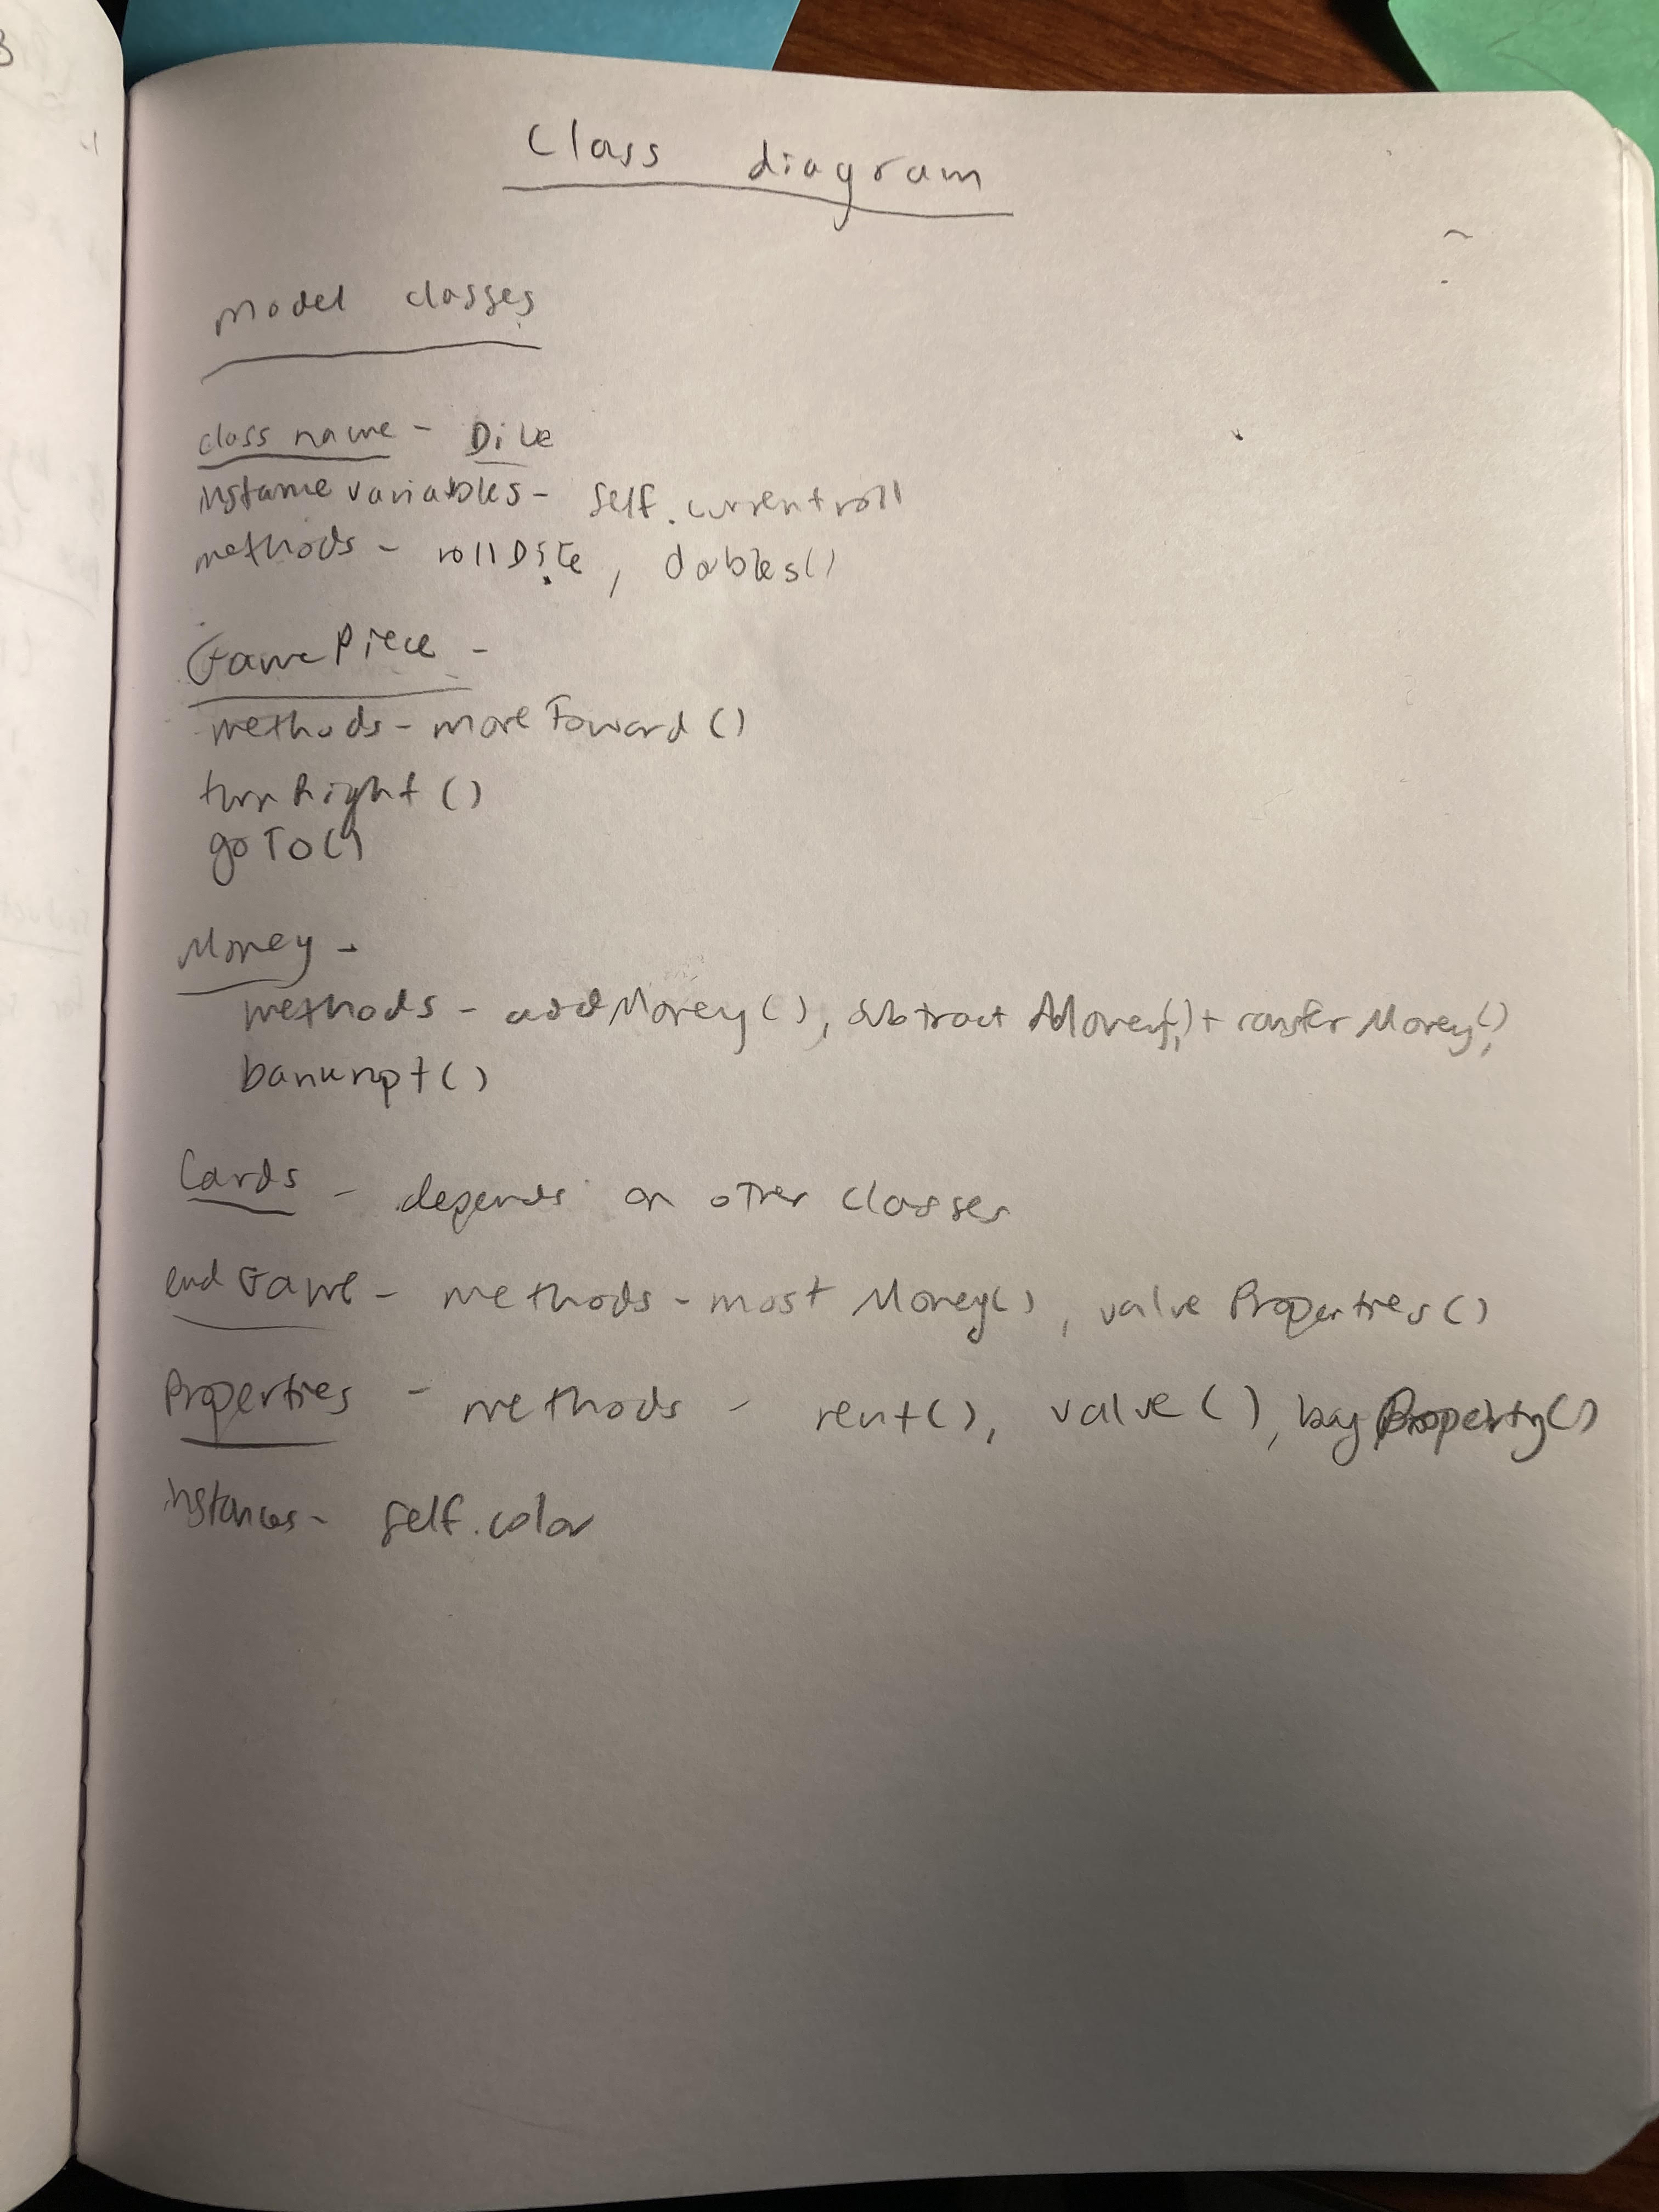 Class diagram
model classes
class name - Dice
instance variables - self.currentroll
methods - rollDice, dobles()
GamePiece -
methods - moveFoward()
turnRight()
goTo()
Money -
methods - addMoney(), subtractMoney(), transferMoney(),
bankrupt()
Cards - depends on other classes
endGame - methods - mostMoney(), valueProperties()
Properties - methods - rent(), value(), buyProperty()
instances - self.color